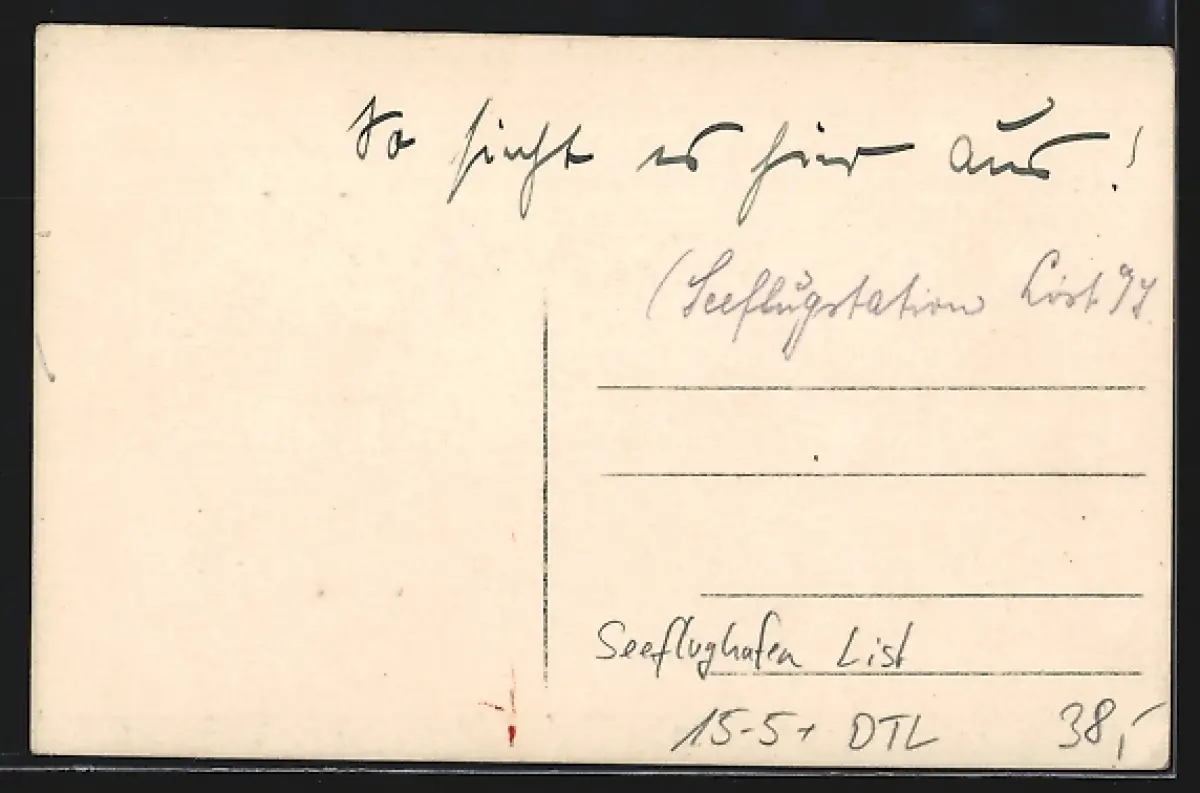 So sieht es hier aus!
(Seeflugstation List
Seeflughafen List
15-5+ DTL 38,-